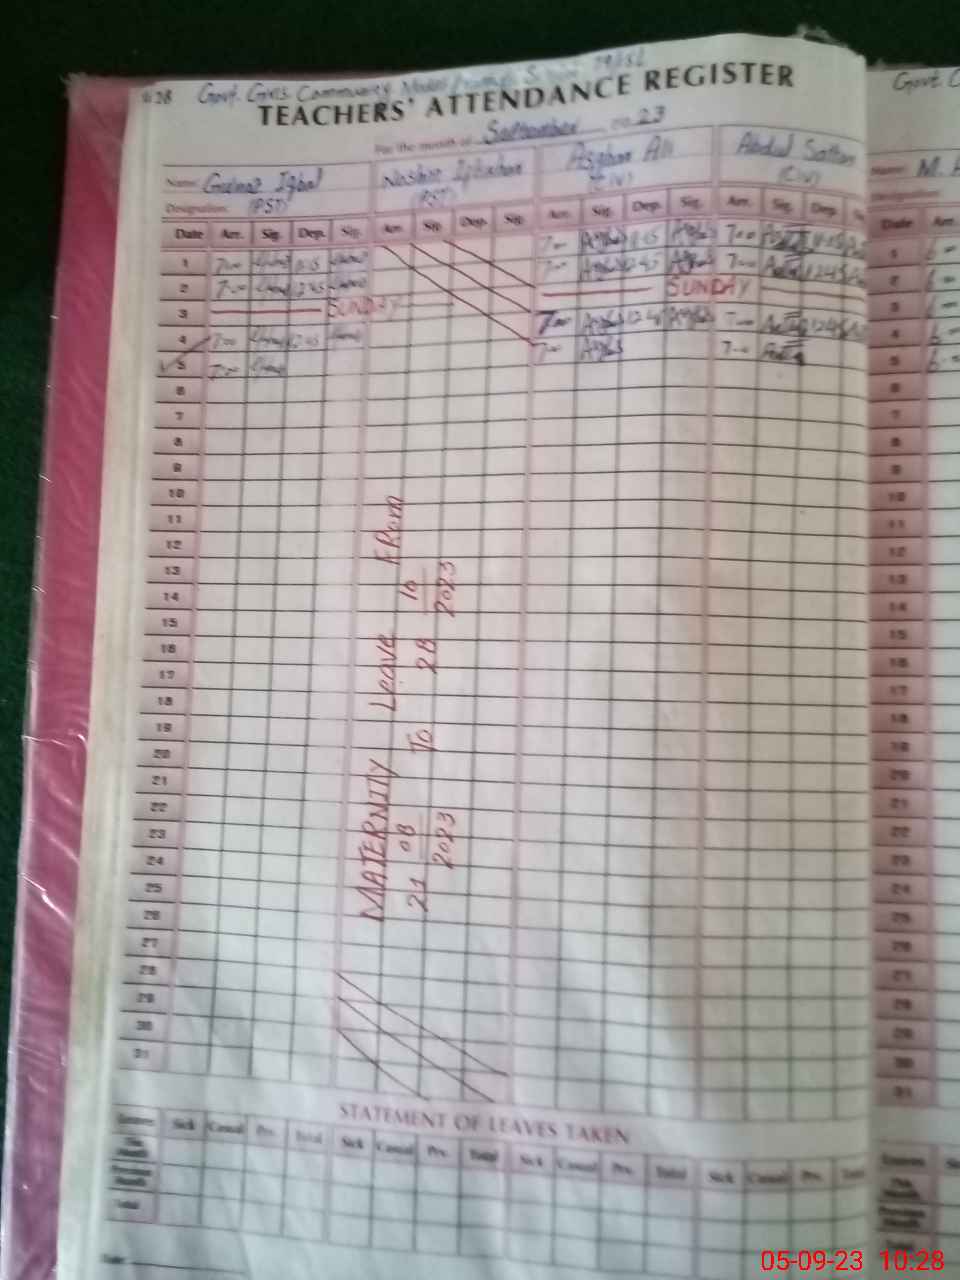 Govt. Girls Community Model Primary School
Govt.
TEACHERS' ATTENDANCE REGISTER
For the month of September 2023
Name: Gulnaz Iqbal
Asghar Ali
Abdul Sattar
Name: M.
Designation: (PST) (PST) (C.IV) (C.IV)
Designation:
Date Arr. Sig. Dep. Sig. Arr. Sig. Dep. Sig. Arr. Sig. Dep. Sig. Arr. Sig. Dep.
Date Arr.
1 7-00 11:15 7-00 11:15 7-00 11:15
2 7-00 12:45 7-00 12:45 7-00 12:45
3 SUNDAY SUNDAY
4 7-00 12:45 7-00 12:45 7-00 12:45
5 7-00 7-00 7-00
6
7
8
9
10
11
12
13
14
15
16
17
18
19
20
21
22
23
24
25
26
27
28
29
30
31
MATERNITY Leave FRom
21 08 2023 To 28 10 2023
1
2
3
4
5
6
7
8
9
10
11
12
13
14
15
16
17
18
19
20
21
22
23
24
25
26
27
28
29
30
31
STATEMENT OF LEAVES TAKEN
Leaves Sick Casual Prv. Total Sick Casual Prv. Total Sick Casual Prv. Total Sick Casual Prv. Total
This Month
Previous Month
Total
Leaves
This Month
Previous Month
Total
05-09-23 10:28